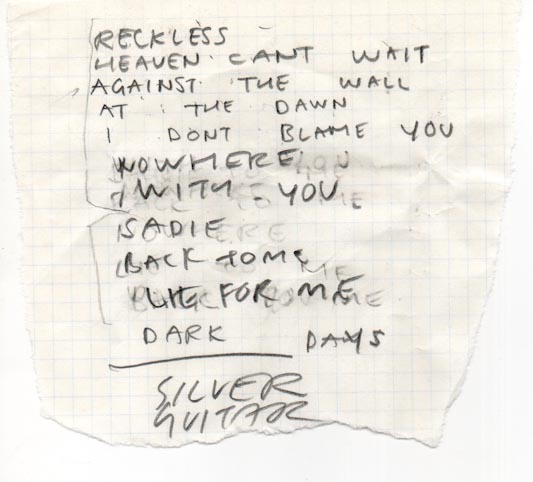 RECKLESS
HEAVEN CANT WAIT
AGAINST THE WALL
AT THE DAWN
I DONT BLAME YOU
NOWHERE
WITH YOU
SADIE
BACK TO ME
LIE FOR ME
DARK DAYS
SILVER
GUITAR